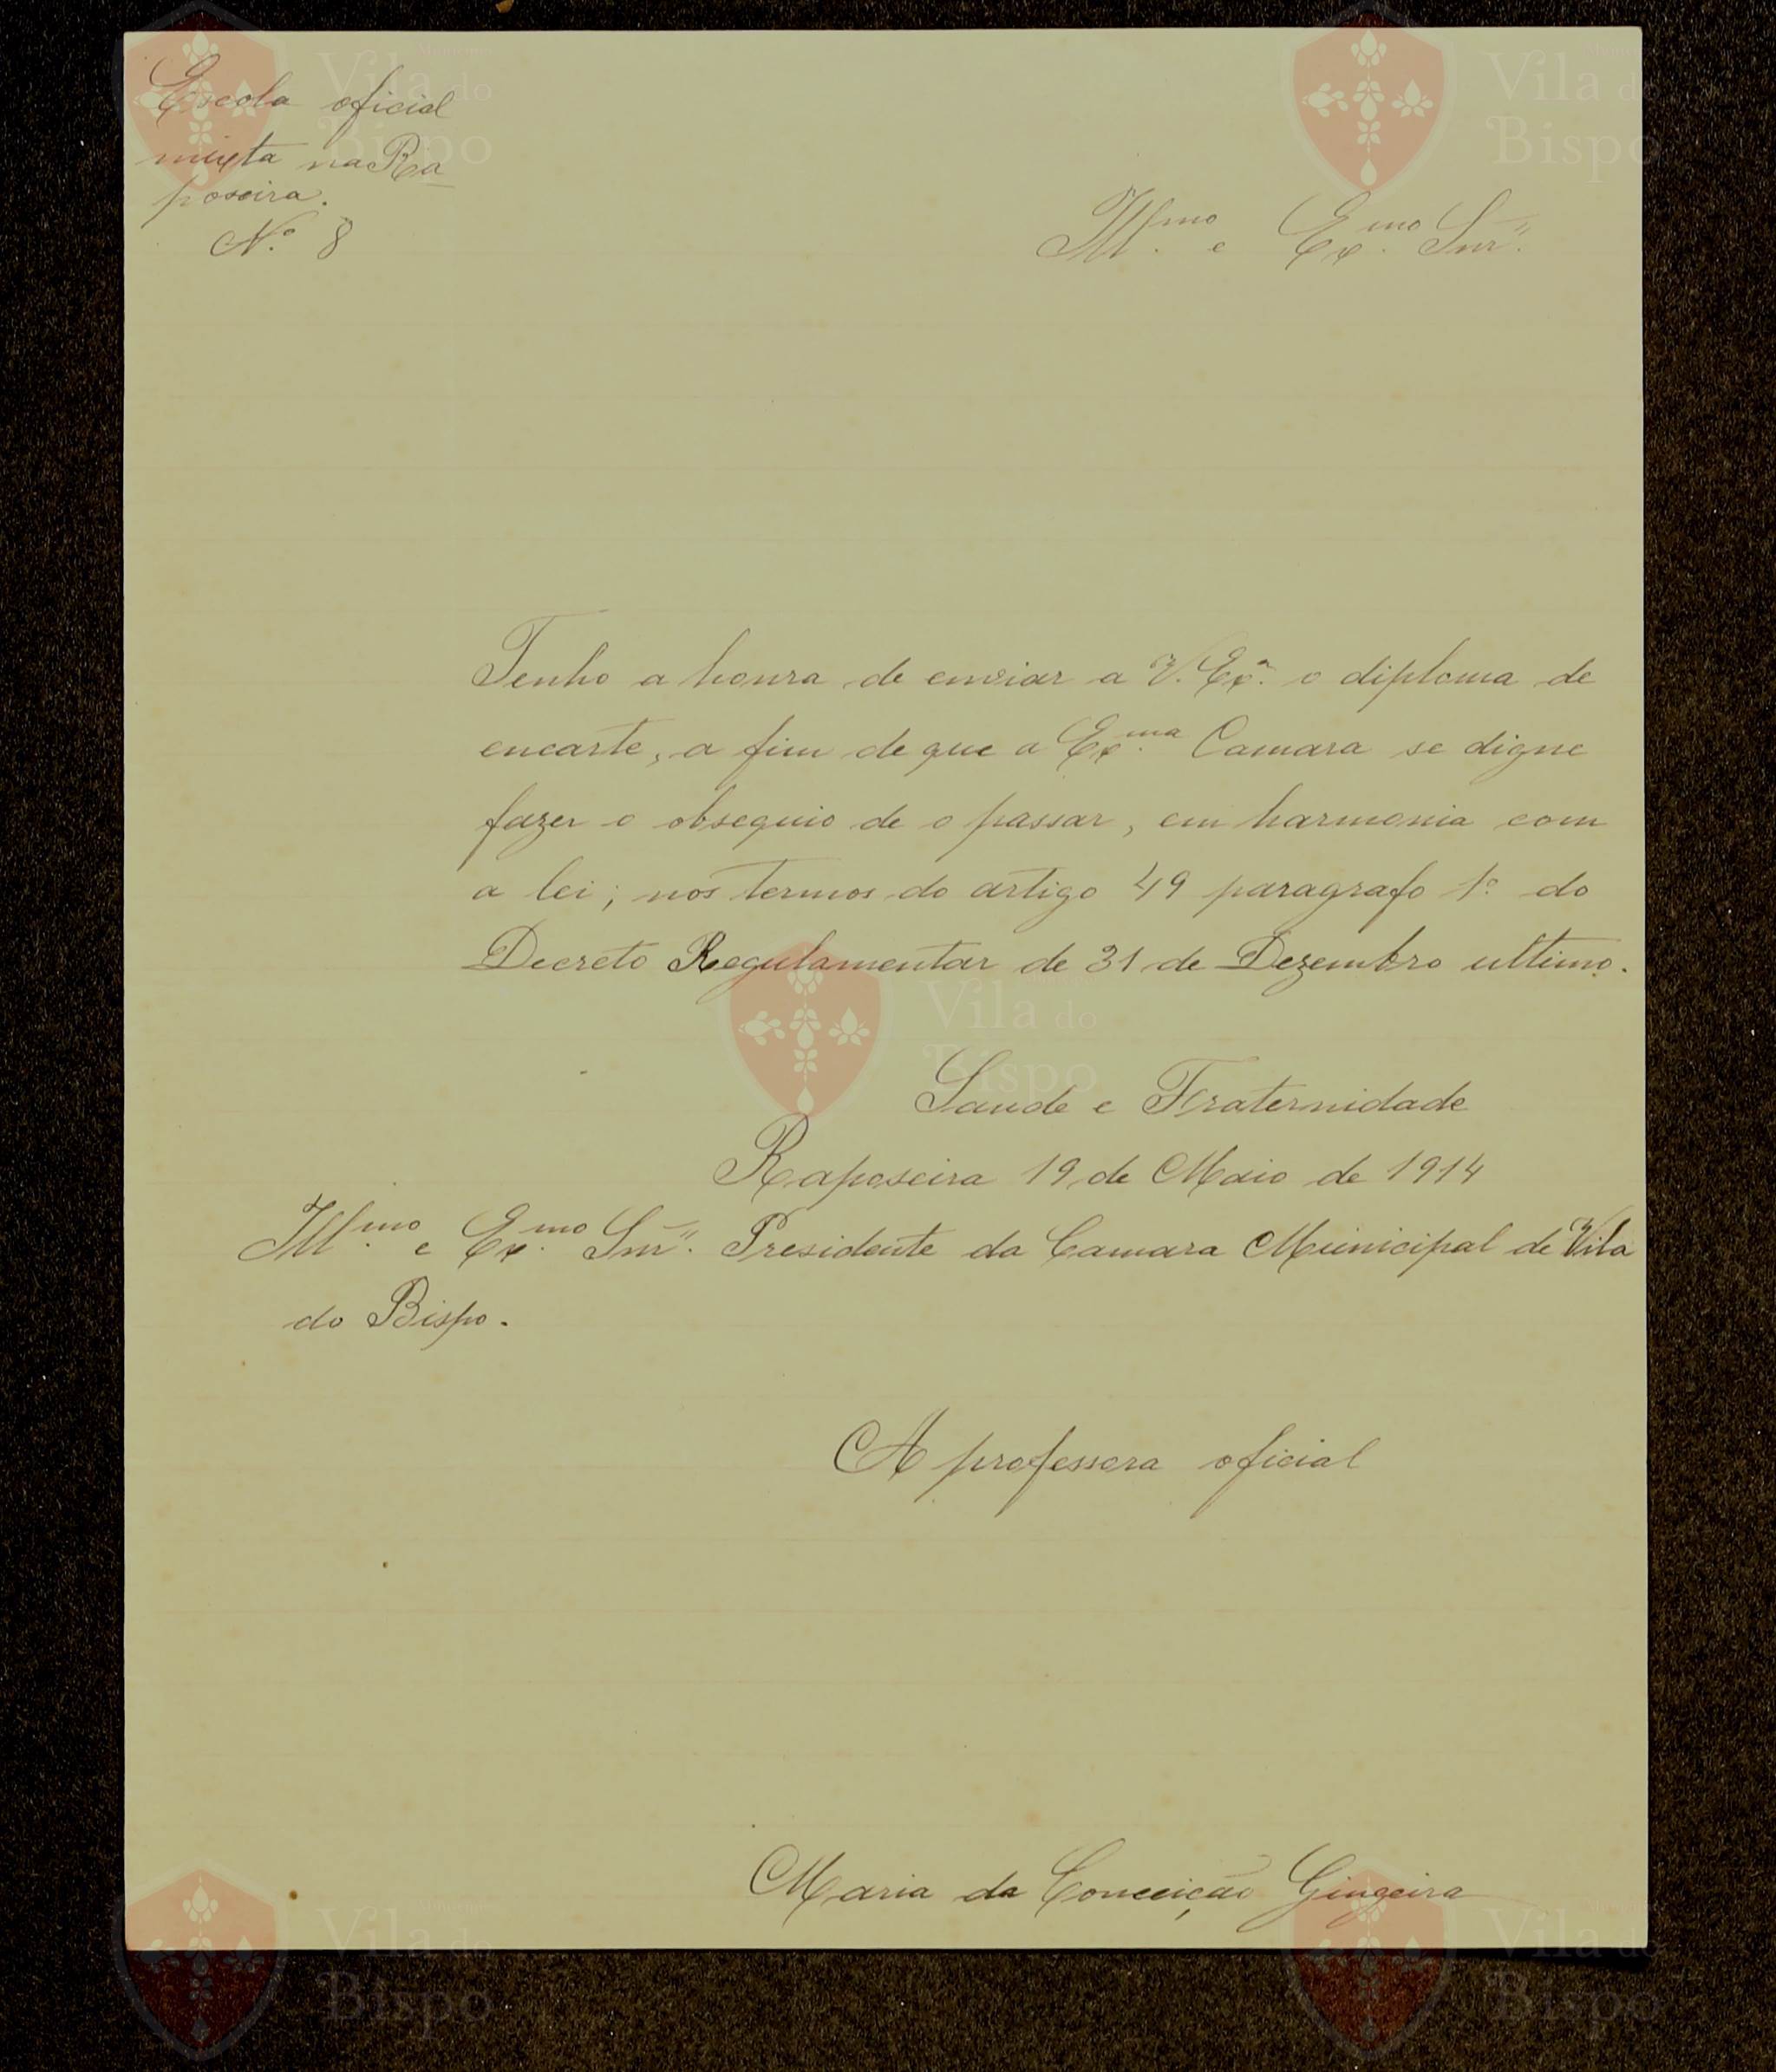 Escola oficial
mixta na Ra-
poseira.
N.º 8
Ill.mo e Ex.mo Snr.
Tenho a honra de enviar a V. Ex.ª o diploma de
encarte, a fim de que a Ex.ma Camara se digne
fazer o obsequio de o passar, em harmonia com
a lei; nos termos do artigo 49 paragrafo 1º do
Decreto Regulamentar de 31 de Dezembro ultimo.
Saude e Fraternidade
Raposeira 19 de Maio de 1914
Ill.mo e Ex.mo Snr. Presidente da Camara Municipal de Vila
do Bispo.
A professora oficial
Maria da Conceição Gingeira
Município
Vila do
Bispo
Município
Vila do
Bispo
Vila do
Bispo
Município
Vila do
Bispo
Vila do
Bispo